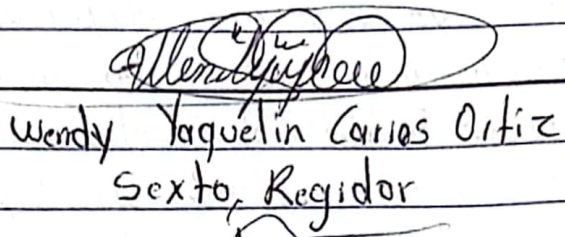 Wendy Yaquelin Carlos Ortiz
Sexto, Regidor